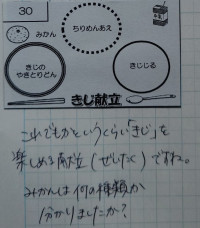 30
みかん
ちりめんあえ
きじの
やきとりどん
きじじる
きじ献立
これでもかというくらい「きじ」を
楽しめる献立(ぜいたく)ですね。
みかんは何の種類か
分かりましたか?